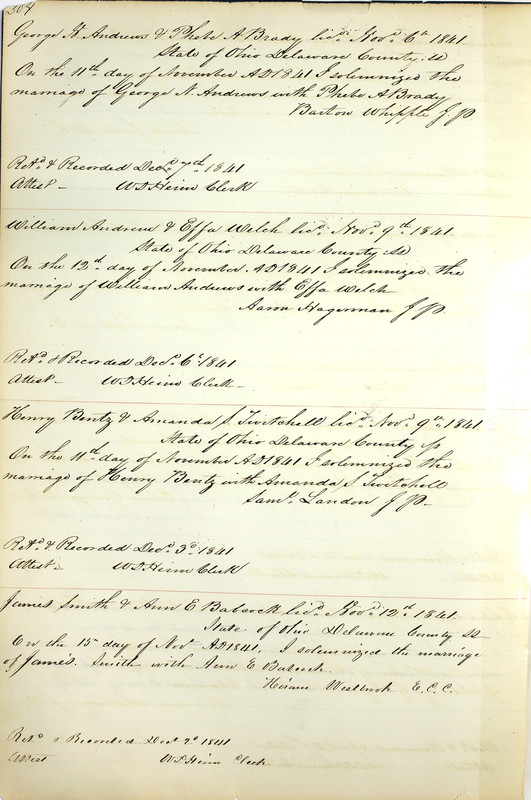 304
George H. Andrews & Phebe A Brady licd. Novr. 6th 1841
State of Ohio Delaware County, ss
On the 11th day of November AD 1841 I solemnized the
marriage of George N. Andrews with Phebe A Brady
Barton Whipple J P
Retd. & Recorded Decr. 7th 1841
Attest - W D Heim Clerk
William Andrews & Effa Welch licd. Novr. 9th 1841.
State of Ohio Delaware County ss
On the 12th day of November AD 1841 I solemnized the
marriage of William Andrews with Effa Welch
Aaron Hagerman J P.
Retd. & Recorded Decr. 6th 1841
Attest - W D Heim Clerk -
Henry Bentz & Amanda S. Twitchell licd. Novr. 9th 1841
State of Ohio Delaware County ss
On the 11th day of November AD 1841 I solemnized the
marriage of Henry Bentz with Amanda S Twitchell
Saml. Landon J P.
Retd. & Recorded Decr. 3d. 1841
Attest - W D Heim Clerk
James Smith & Ann E Babcock licd. Novr. 12th 1841.
State of Ohio Delaware County ss
On the 15 day of Novr. AD 1841. I solemnized the marriage
of James. Smith with Ann E Babcock
Hiram Westbrook E. C. C.
Retd. & Recorded Decr 2d. 1841
Attest W D Heim Clerk